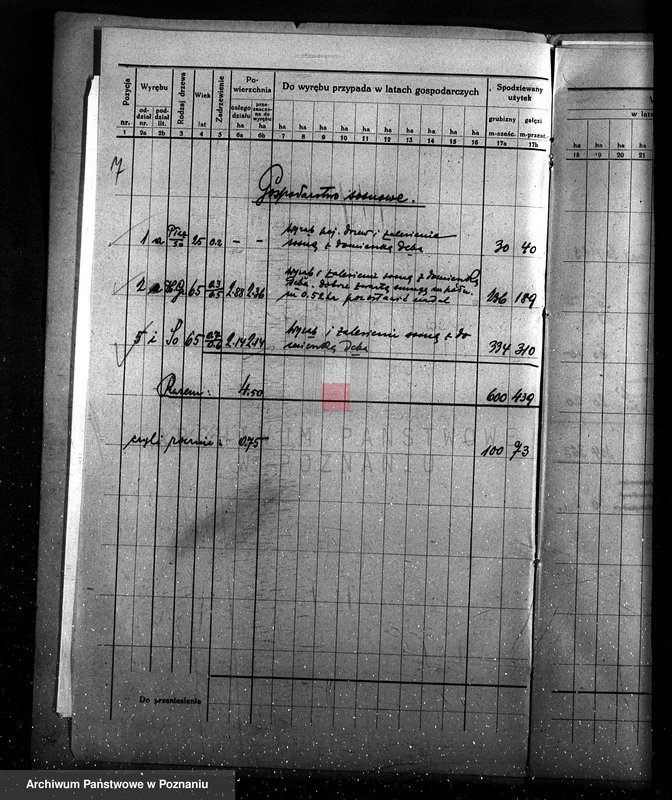 Pozycja nr. Wyrębu Rodzaj drzewa Wiek lat Zadrzewienie Powierzchnia Do wyrębu przypada w latach gospodarczych Spodziewany użytek
oddział nr. poddział lit. całego działu ha przeznaczona do wyrębu ha ha ha ha ha ha ha ha ha ha ha grubizny m-sześc. gałęzi m-przest.
w lata
ha ha ha ha
1 2a 2b 3 4 5 6a 6b 7 8 9 10 11 12 13 14 15 16 17a 17b
18 19 20 21
7
Gospodarstwo sosnowe.
1 a 25 0.2 – – wyrąb poj. drzew i zalesienie
sosną z domieszką dęba 30 40
2 a 65 0.3 0.5 2.88 2.36 wyrąb i zalesienie sosną z domieszką
dęba. dobrze zwartą
0.52 ha pozostawić nadal 236 189
5 i So 65 0.7 0.6 2.14 2.14 wyrąb i zalesienie sosną z do
mieszką dęba 334 310
Razem: 4.50 600 439
czyli rocznie: 0.75 100 73
ARCHIWUM PAŃSTWOWE
W POZNANIU
Do przeniesienia
Archiwum Państwowe w Poznaniu